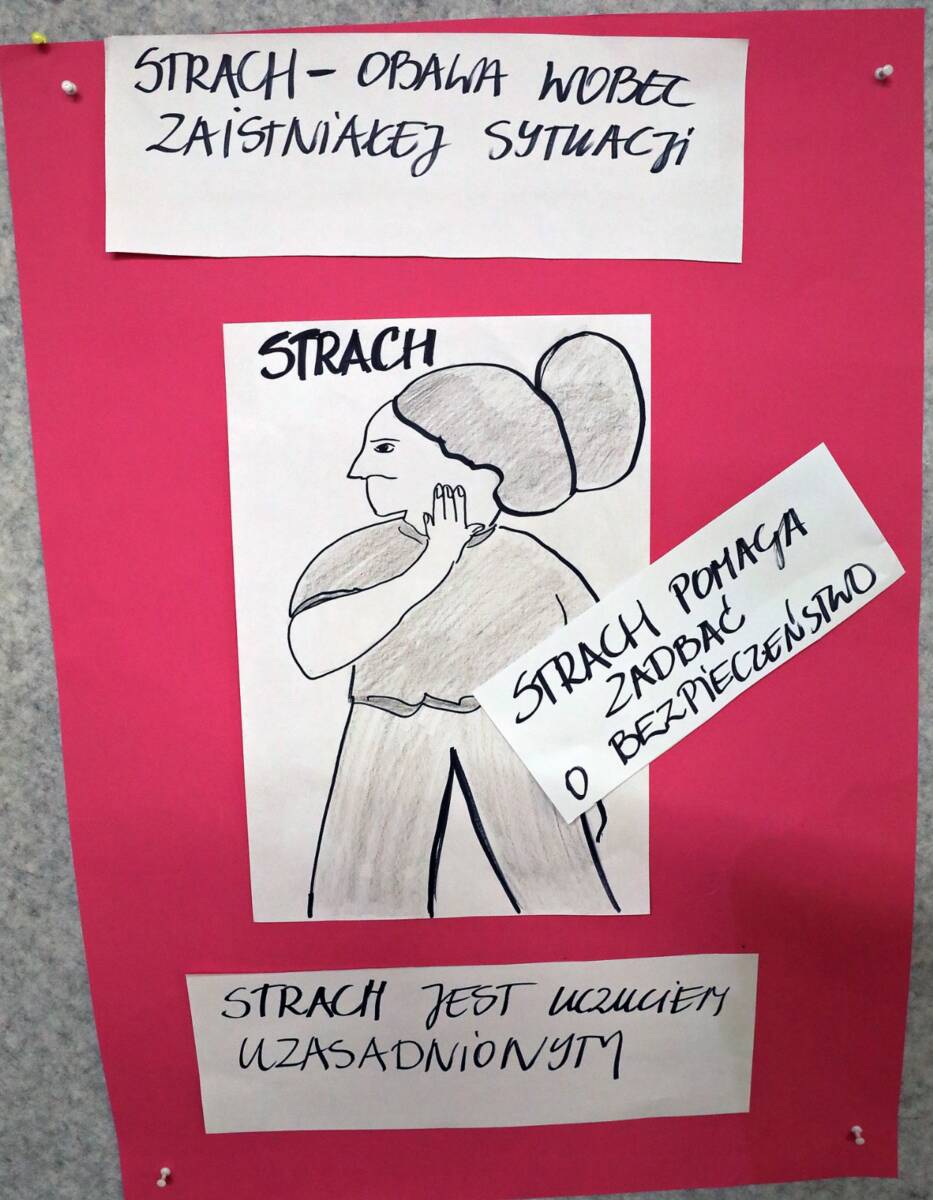 STRACH – OBAWA WOBEC
ZAISTNIAŁEJ SYTUACJI
STRACH
STRACH POMAGA
ZADBAĆ
O BEZPIECZEŃSTWO
STRACH JEST UCZUCIEM
UZASADNIONYM